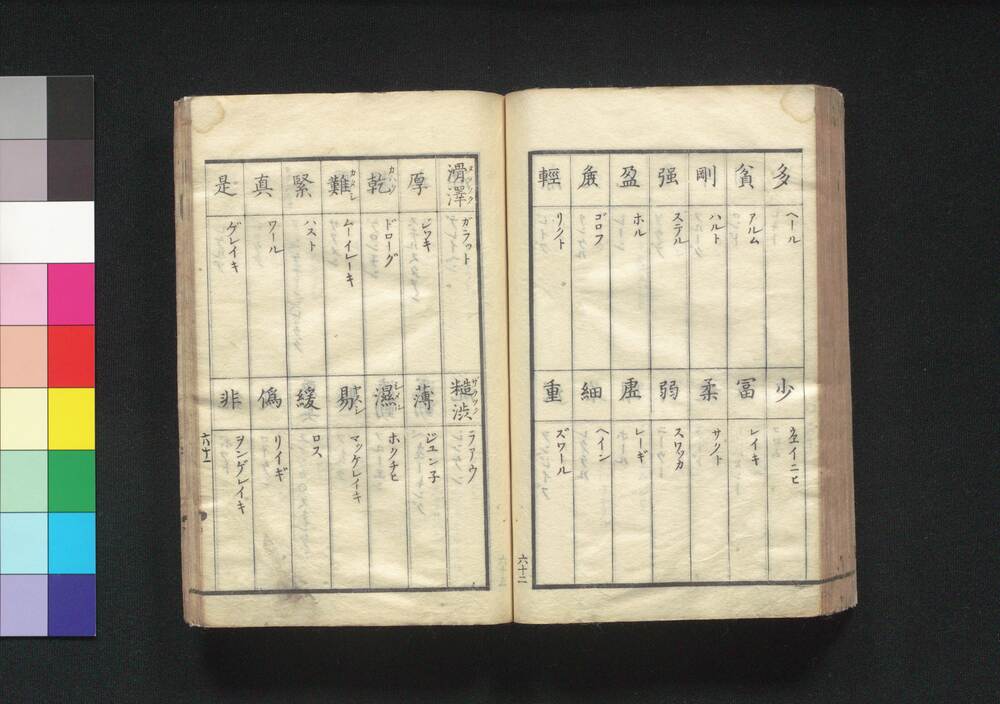 多
ヘール
貧
アルム
剛
ハルト
强
ステル
盈
ホル
麁
ゴロフ
輕
リクト
少
ヱイニヒ
冨
レイキ
柔
サクト
弱
スワッカ
虚
レーギ
細
ヘイン
重
ズワール
六十二
滑澤
ガラット
厚
ジッキ
乾
カハク
ドローグ
難
カタシ
ムーイレーキ
緊
ハスト
真
ワール
是
ゲレイキ
糙渋
ラアウ
薄
ジュン子
濕
ホクチヒ
易
ヤスシ
マッケレイキ
緩
ロス
偽
リイギ
非
ヲンゲレイキ
六十一